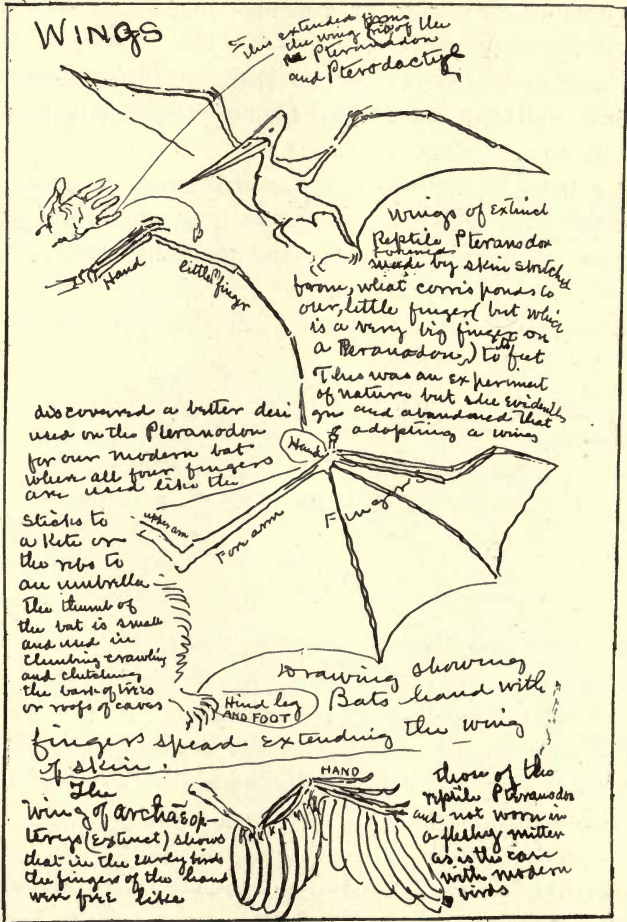 WINGS
This extended forms
the wing rib of the
Pteranodon
and Pterodactyl
Hand
little finger
Wings of Extinct
Reptile Pteranodon
made by skin stretched
from, what corrisponds to
our, little finger (but which
is a very big finger on
a Peranadon,) to its feet
This was an experiment
of nature but she evidently
discovered a better desi gn and abandoned that
used on the Pteranodon adopting a wing
for our modern bat
where all four fingers
are used like the
sticks to
a Kite or
the ribs to
an umbrella
The thumb of
the bat is small
and used in
climbing crawling
and clutching
the bark of trees
or roofs of caves
Hand
upper arm
Forearm
Fingers
Hind leg
AND FOOT
Drawing showing
Bats hand with
fingers spead extending the wing
of skin.
HAND
The
wing of Archaeop-
teryx (Extinct) shows
that in the early birds
the fingers of the hand
were free like
those of the
reptile Pteranodon
and not worn in
a fleshy mitten
as is the case
with modern
birds